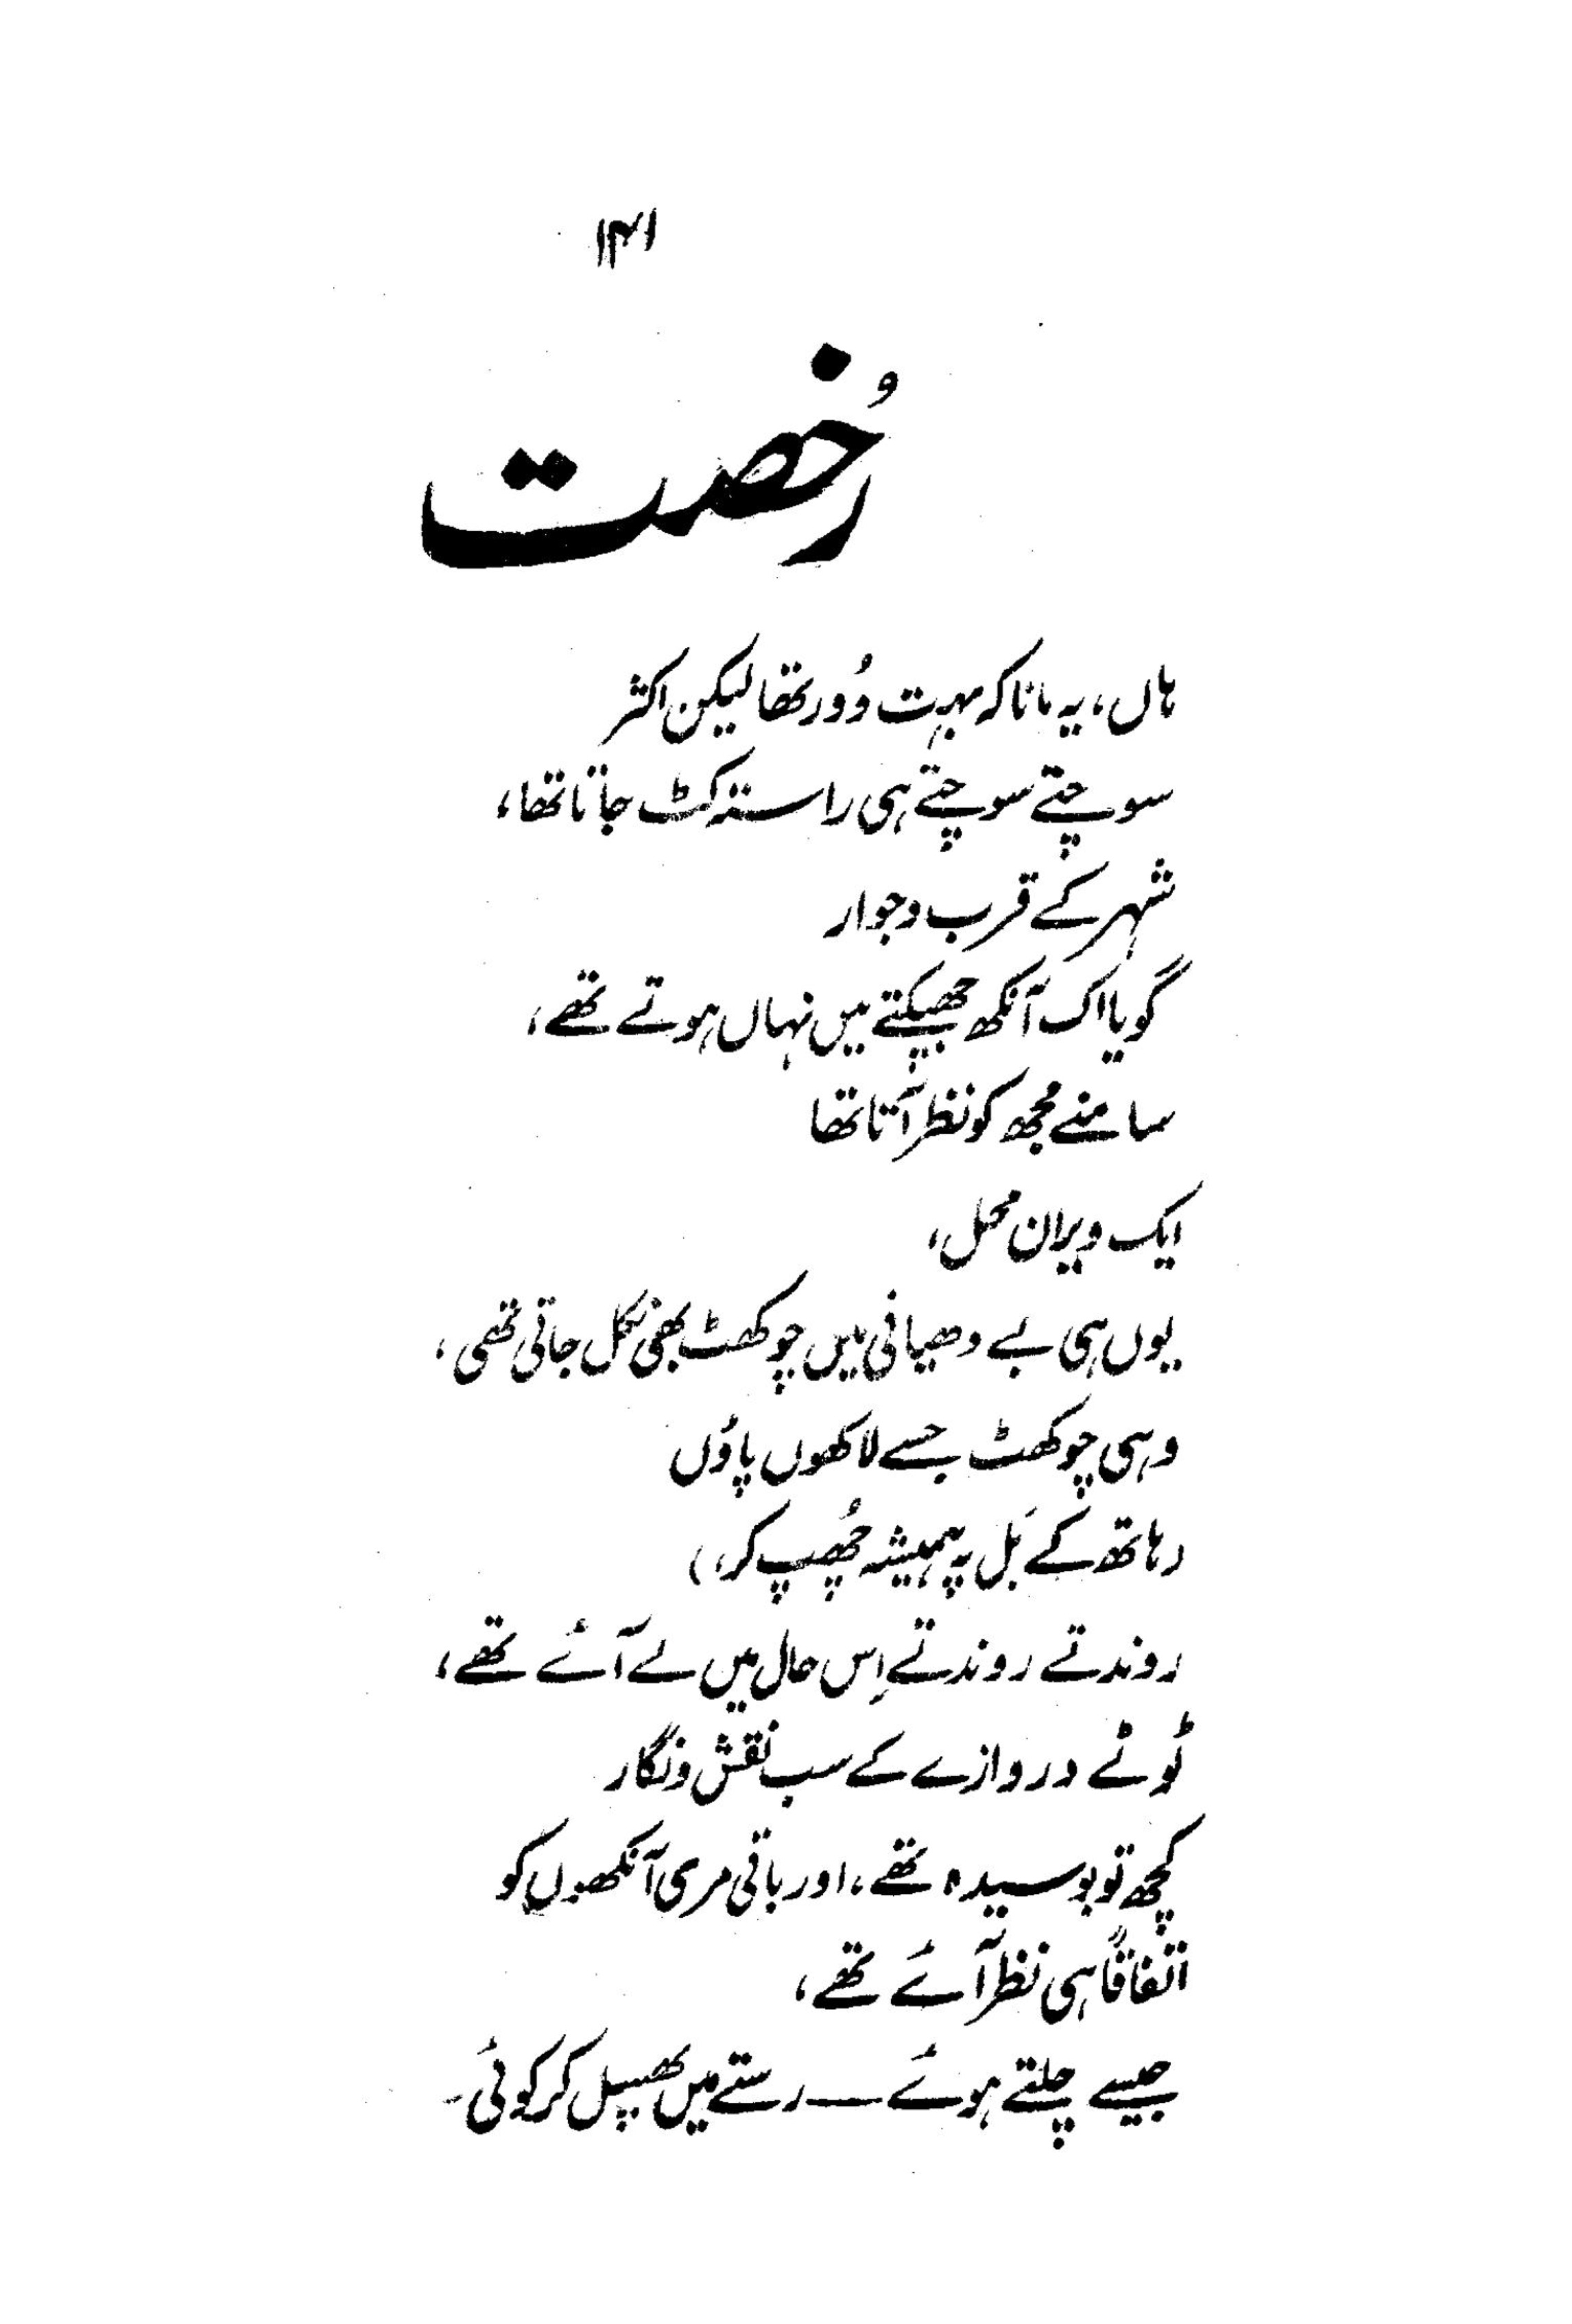 ۱۴۱
رُخصت
ہاں، یہ مانا کہ بہت دُور تھا لیکن اکثر
سوچتے سوچتے ہی راستہ کٹ جاتا تھا،
شہر کے قرب و جوار
گویا اک آنکھ جھپکتے میں نہاں ہوتے تھے،
سامنے مجھ کو نظر آتا تھا
ایک ویران محل،
یوں ہی بے دھیانی میں چوکھٹ بھی نکل جاتی تھی،
وہی چوکھٹ جسے لاکھوں پاؤں
(ہاتھ کے بَل پہ ہمیشہ چُھپ کر،)
روندتے روندتے اِس حال میں لے آئے تھے،
ٹوٹے دروازے کے سب نقش و نگار
کچھ تو بوسیدہ تھے، اور باقی مری آنکھوں کو
اتفاقاً ہی نظر آئے تھے،
جیسے چلتے ہوئے — رستے میں پھسل کر کوئی۔